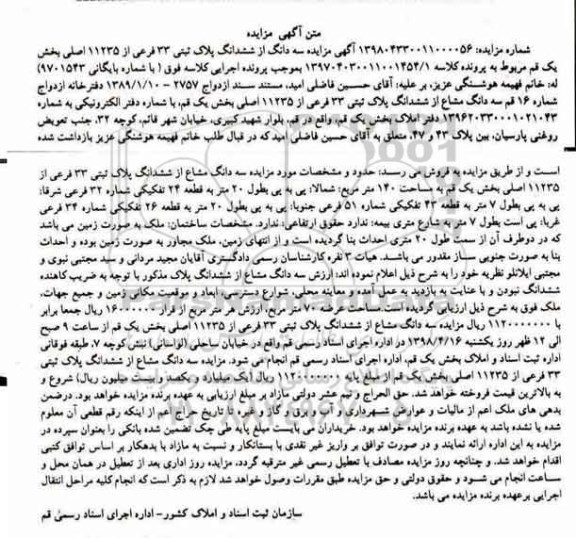 متن آگهی مزایده
شماره مزایده: ۱۳۹۸۰۴۳۳۰۰۱۱۰۰۰۰۵۶ آگهی مزایده سه دانگ از ششدانگ پلاک ثبتی ۳۳ فرعی از ۱۱۲۳۵ اصلی بخش
یک قم مربوط به پرونده کلاسه ۱۳۹۷۰۴۰۳۰۰۱۱۰۰۱۴۵۴/۱ بموجب پرونده اجرایی کلاسه فوق ( با شماره بایگانی ۹۷۰۱۵۴۳)
له: خانم فهیمه هوشنگی عزیز، بر علیه: آقای حسین فاضلی امید، مستند سند ازدواج ۲۷۵۷ - ۱۳۸۹/۱/۱۰ دفترخانه ازدواج
شماره ۱۶ قم سه دانگ مشاع از ششدانگ پلاک ثبتی ۳۳ فرعی از ۱۱۲۳۵ اصلی بخش یک قم، با شماره دفتر الکترونیکی به شماره
۱۳۹۶۲۰۳۳۰۰۰۱۰۲۱۰۴۳ دفتر املاک بخش یک قم، واقع در قم، بلوار شهید کبیری، خیابان شهر قائم، کوچه ۳۲، جنب تعویض
روغنی پارسیان، بین پلاک ۴۳ و ۴۷، متعلق به آقای حسین فاضلی امید که در قبال طلب خانم فهیمه هوشنگی عزیز بازداشت شده
است و از طریق مزایده به فروش می رسد: حدود و مشخصات مورد مزایده سه دانگ مشاع از ششدانگ پلاک ثبتی ۳۳ فرعی از
۱۱۲۳۵ اصلی بخش یک قم به مساحت ۱۴۰ متر مربع: شمالا: پی به پی بطول ۲۰ متر به قطعه ۲۴ تفکیکی شماره ۳۲ فرعی شرقا:
پی به پی بطول ۷ متر به قطعه ۴۳ تفکیکی شماره ۵۱ فرعی جنوبا: پی به پی بطول ۲۰ متر به قطعه ۲۶ تفکیکی شماره ۳۴ فرعی
غربا: پی است بطول ۷ متر به شارع متری بیمه: ندارد حقوق ارتفاعی: ندارد. مشخصات ساختمان: ملک به صورت زمین می باشد
که در دوطرف آن از سمت طول ۲۰ متری احداث بنا گردیده است و از انتهای زمین، ملک مجاور به صورت زمین بوده و احداث
بنا به صورت جنوبی ساز مقدور می باشد. هیات ۳ نفره کارشناسان رسمی دادگستری آقایان مجید مردانی و سید مجتبی نبوی و
مجتبی ایلانلو نظریه خود را به شرح ذیل اعلام نموده اند: ارزش سه دانگ مشاع از ششدانگ پلاک مذکور با توجه به ضریب کاهنده
ششدانگ نبودن و با عنایت به بازدید به عمل آمده و معاینه محلی، شوارع دسترسی، ابعاد و موقعیت مکانی زمین و جمیع جهات،
ملک فوق به شرح ذیل ارزیابی گردیده است. مساحت عرصه ۷۰ متر مربع، ارزش هر متر مربع از قرار ۱۶۰۰۰۰۰۰ ریال جمعا برابر
با ۱۱۲۰۰۰۰۰۰۰ ریال مزایده سه دانگ مشاع از ششدانگ پلاک ثبتی ۳۳ فرعی از ۱۱۲۳۵ اصلی بخش یک قم از ساعت ۹ صبح
الی ۱۲ ظهر روز یکشنبه ۱۳۹۸/۴/۱۶ در اداره اجرای اسناد رسمی قم واقع در خیابان ساحلی (لواسانی) نبش کوچه ۷، طبقه فوقانی
اداره ثبت اسناد و املاک بخش یک قم، اداره اجرای اسناد رسمی قم انجام می شود. مزایده سه دانگ مشاع از ششدانگ پلاک ثبتی
۳۳ فرعی از ۱۱۲۳۵ اصلی بخش یک قم از مبلغ پایه ۱۱۲۰۰۰۰۰۰۰ ریال (یک میلیارد و یکصد و بیست میلیون ریال) شروع و
به بالاترین قیمت فروخته خواهد شد. حق الحراج و نیم عشر دولتی مازاد بر مبلغ ارزیابی به عهده برنده مزایده خواهد بود. درضمن
بدهی های ملک اعم از مالیات و عوارض شهرداری و آب و برق و گاز و غیره تا تاریخ حراج اعم از اینکه رقم قطعی آن معلوم
شده یا نشده باشد به عهده برنده مزایده خواهد بود. خریداران می بایست مبلغ پایه طی چک تضمین شده بانکی را بعنوان سپرده در
مزایده به این اداره ارائه نمایند و در صورت توافق بر واریز غیر نقدی با بستانکار و نسبت به مازاد با بدهکار بر اساس توافق کتبی
اقدام خواهد شد. و چنانچه روز مزایده مصادف با تعطیل رسمی غیر مترقبه گردد، مزایده روز اداری بعد از تعطیل در همان محل و
ساعت انجام می شود و حقوق دولتی و حق مزایده طبق مقررات وصول خواهد شد لازم به ذکر است که انجام کلیه مراحل انتقال
اجرایی برعهده برنده مزایده می باشد.
سازمان ثبت اسناد و املاک کشور- اداره اجرای اسناد رسمی قم